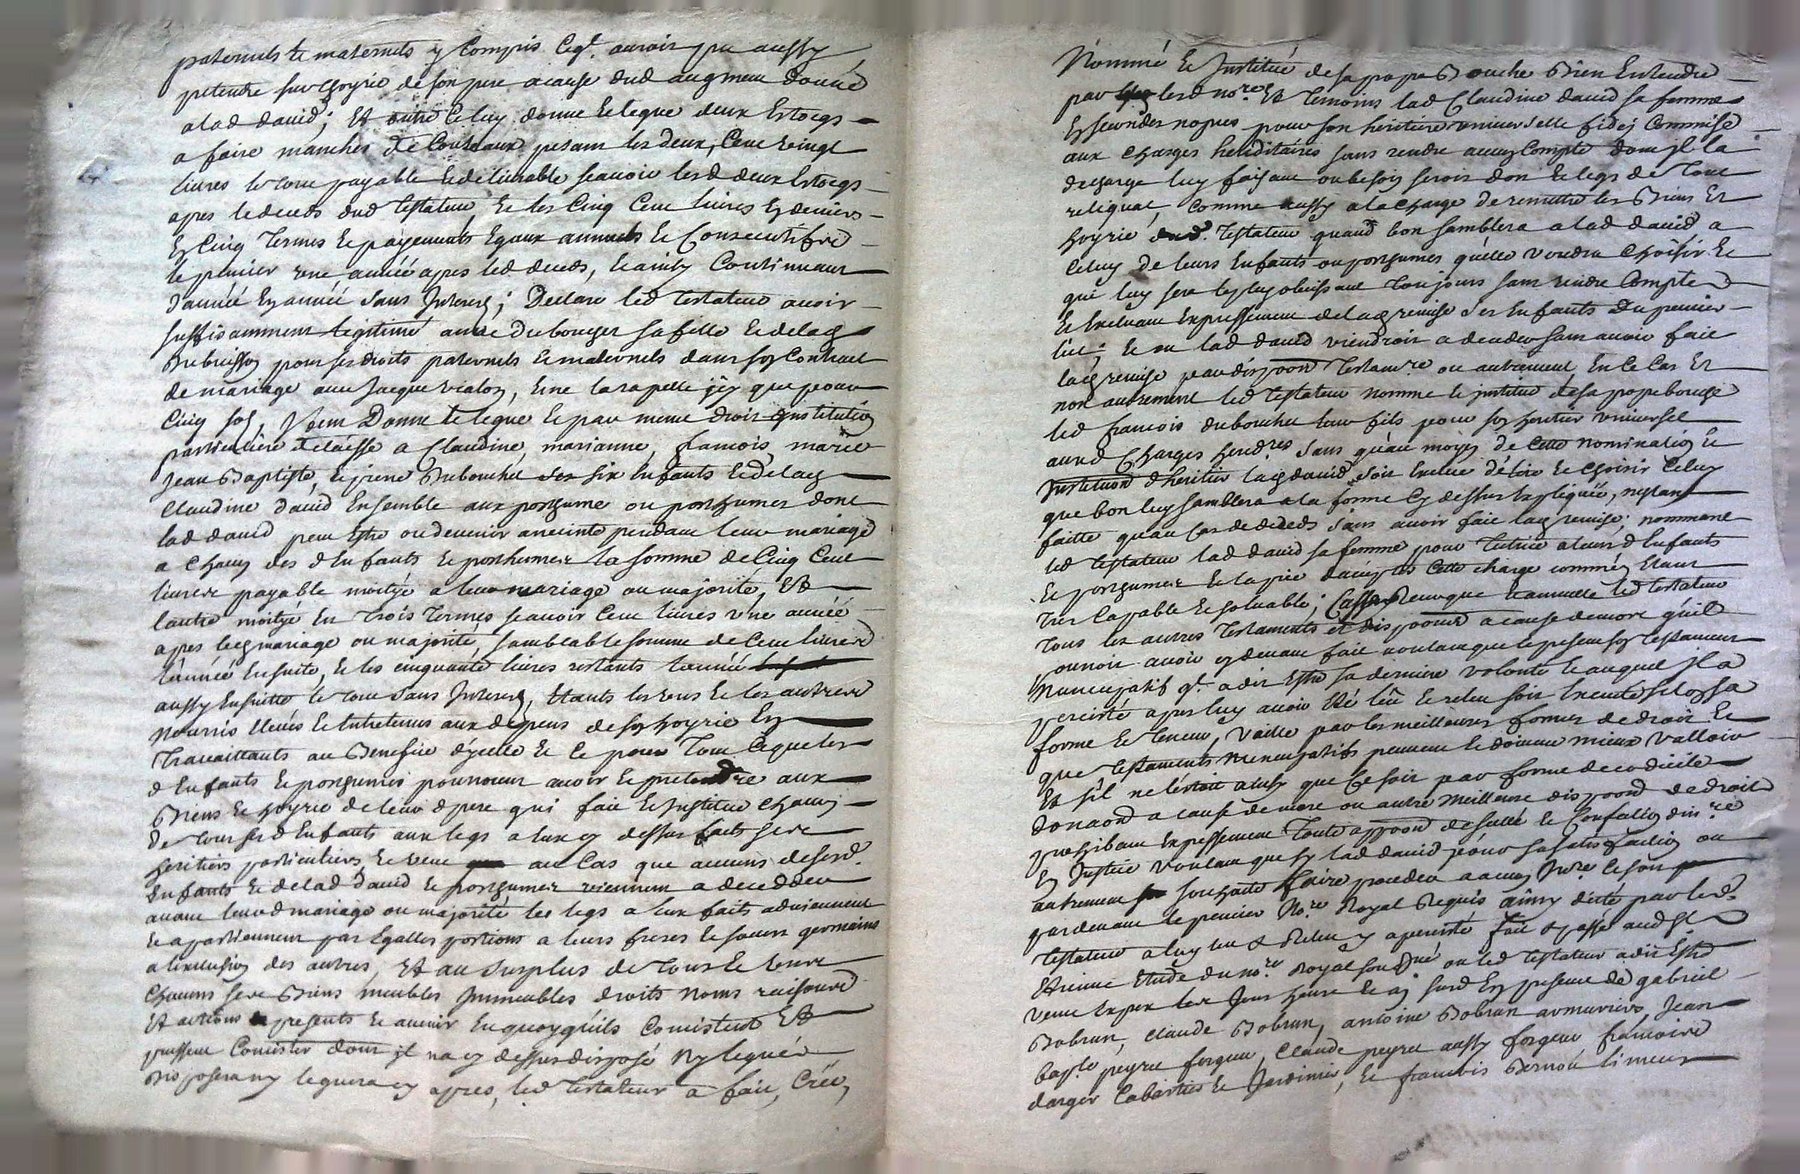 paternels et maternels y Compris Ceql. auroit pu aussy
pretendre sur lhoyrie de son pere a cause dud augment donné
a lad david; Et outre Celuy donne et legue deux Estocqs
a faire manches de Couteaux pesant les deux, Cent vingt
livres le tout payable et delivrable scavoir lesd deux Estocqs
apres le deceds dud Testateur et les Cinq Cent livres En deniers
En Cinq Termes et payements Egaux annuels et Consecutifs
le premier une année apres led deceds, et ainsy Continuant
d'année En année sans Interest; Declare led testateur avoir
suffisamment legitimé autre dubouchet sa fille et de laq
dubuisson pour ses droits paternels et maternels dans son Contract
de mariage avec Jacque vialon, et ne la rapelle icy que pour
Cinq sol, Item Donne et legue et par meme droit dinstitution
particuliere delaisse a Claudine, marianne, francois, marie
Jean Baptiste, et pierre Dubouchet ses six Enfants et de laq
Claudine david Ensemble aux posthume ou posthumes dont
lad david peut estre ou devenir enceinte pendant leur mariage
a chacun des d Enfants et posthumes la somme de Cinq Cent
livres payable moityé a leur mariage ou majorité, Et
lautre moityé En trois Termes scavoir Cent livres une année
apres leq mariage ou majorité, semblable somme de Cent livres
l'année Ensuite, et les cinquante livres restants l'année
aussy Ensuitte le tout sans Interest, Etants les uns et les autres
nourris Elevés et Entretenus aux depens de son hoyrie En
Travaillants au Benefice d'ycelle et Ce pour Tout Ce que les
d Enfants et posthumes pourroient avoir et pretendre aux
Biens et hoyrie de leur d pere qui fait et Institue Chacun
de tous ses d Enfants aux legs a Eux cy dessus faits ses
heritiers particuliers et veut au Cas que aucuns desd.
Enfants et de lad David et posthumes viennent a deceder
avant leurd mariage ou majorité les legs a Eux faits adviennent
et apartiennent par Egalles portions a leurs freres et soeurs germains
a lexclusion des autres, Et au surplus de tous et uns
Chacuns ses Biens meubles Immeubles droits noms raisons
Et actions presents et avenir En quoy qu'ils Consistent Et
puissent Consister dont jl na cy dessus disposé Ny legué
disposera ny leguera cy apres, led Testateur a fait, Créé,
Nommé et Institué de sa propre Bouche Bien Entendue
par lesd nores. Et temoins lad Claudine david sa femme
En secondes nopces pour son heritiere universelle fidei Commise
aux charges hereditaires sans rendre aucun Compte dont jl la
decharge luy faisant ou besoin seroit don et legs de tout
reliquat, Comme aussy a la charge de remettre les Biens Et
hoyrie dud. Testateur quand bon semblera a lad david a
Celuy de leurs Enfants ou posthumes qu'elle voudra choisir et
qui luy sera le plus obeissant toujours sans rendre Compte
Et Excluant Expressement de laq remise ses Enfants du premier
lit; et ou lad david viendroit a deceder sans avoir fait
laq remise par dispoon Testamre. ou autrement En Ce Cas Et
non autrement led testateur nomme et institue de sa propre bouche
led francois dubouchet leur fils pour son heritier universel
aux d Charges heredres. sans qu'au moyen de Cette nomination et
Institution d'heritier laq david soit Exclue d'elire et choisir Celuy
que bon luy semblera a la forme Cy dessus Expliquée, n'estant
faitte qu'au Cas de deceds sans avoir fait laq remise; nommant
led testateur lad david sa femme pour Tutrice a leurs d Enfants
et posthumes et la prie d'accepter Cette charge comme Etant
tres Capable et solvable; Casse Revoque et annulle led testateur
tous les autres Testaments et dispoons a cause de mort qu'il
pouroit avoir cy devant fait voulant que le present son testament
Nuncupatif ql. a dit Estre sa derniere volonté et auquel jl a
percisté apres luy avoir Eté leu et releu soit Executé selon sa
forme et teneur, vaille par les meilleures formes de droit et
que Testaments Nuncupatifs peuvent et doivent mieux valloir
Et s'il ne l'estoit ainsy que Ce soit par forme de codicile
donaon a cause de mort ou autre meilleure dispoon de droit
prohibant Expressement Toutte appoon de scellé et Confection dinre.
En Justice voulant que sy lad david pour sa satisfaction ou
autrement souhaite faire proceder a aucun Inre. Ce soit
pardevant le premier Nore. Royal Requis ainsy dicté par led.
testateur a luy leu & Releu y a percisté fait & passé aud St
Etienne Etude du nore. Royal soussigné ou led testateur a dit Estre
venu Expres les Jour heure et an susd En presence de gabriel
Bobrun, claude Bobrun, antoine Bobrun armuriers, Jean
bapte peyret forgeur, Claude peyret aussy forgeur francoise
darger Cabartier et Jardinier, et francois Bernou limeur